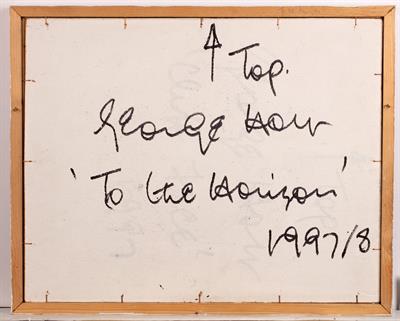 ↑ Top.
George How
'To the Horizon'
1997/8